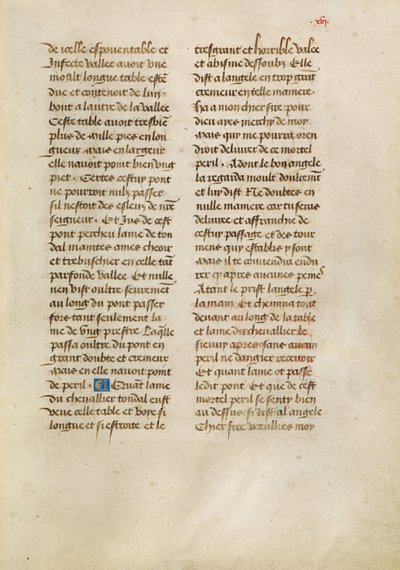 .xvi.
de icelle espouentable et
Infecte vallee auoit vne
moult longue table esten
due et contenoit de lun
bout a lautre de la vallee
Ceste table auoit tresbien
plus de mille pies en lon
gueur Mais en largeur
elle nauoit point bien vng
piet. Certes cestuy pont
ne pouroit nulz passer
sil nestoit des esleuz de nre
seigneur. Et Jus de cest
pont percheu lame de ton
dal maintes ames cheoir
et trebuschier en celle tant
parfonde vallee Et nulle
nen vist oultre seurement
au long du pont passer
fors tant seulement la
me de vng prestre Laqlle
passa oultre du pont en
grant doubte et cremeur
Mais en elle nauoit point
de peril. Quant lame
du cheuallier tondal eust
veue celle table et voye si
longue et si estroite et le
tresgrant et horrible valee
et abisme dessoubz Elle
dist a langele en trop grant
cremeur en telle maniere.
Ha a mon chier sire pour
dieu aies merchy de moy
Mais qui me pourra oren
droit deliurer de ce mortel
peril. Adont le bon angele
la regarda moult doulcemt
et luy dist Ne doubtes en
nulle maniere car tu seras
deliure et affranchie de
cestuy passage et des tour
mens qui establis y sont
Mais il te conuiendra endu
rer cy apres aucunes peines
Atant le prist langele p
la main Et chemina tout
deuant au long de la table
et lame du cheuallier le
sieuuy apres sans aucun
peril ne dangier receuoir
Et quant lame ot passe
ledit pont Et que de cest
mortel peril se senty bien
au dessus si dist al angele
Chier sire vueillies moy